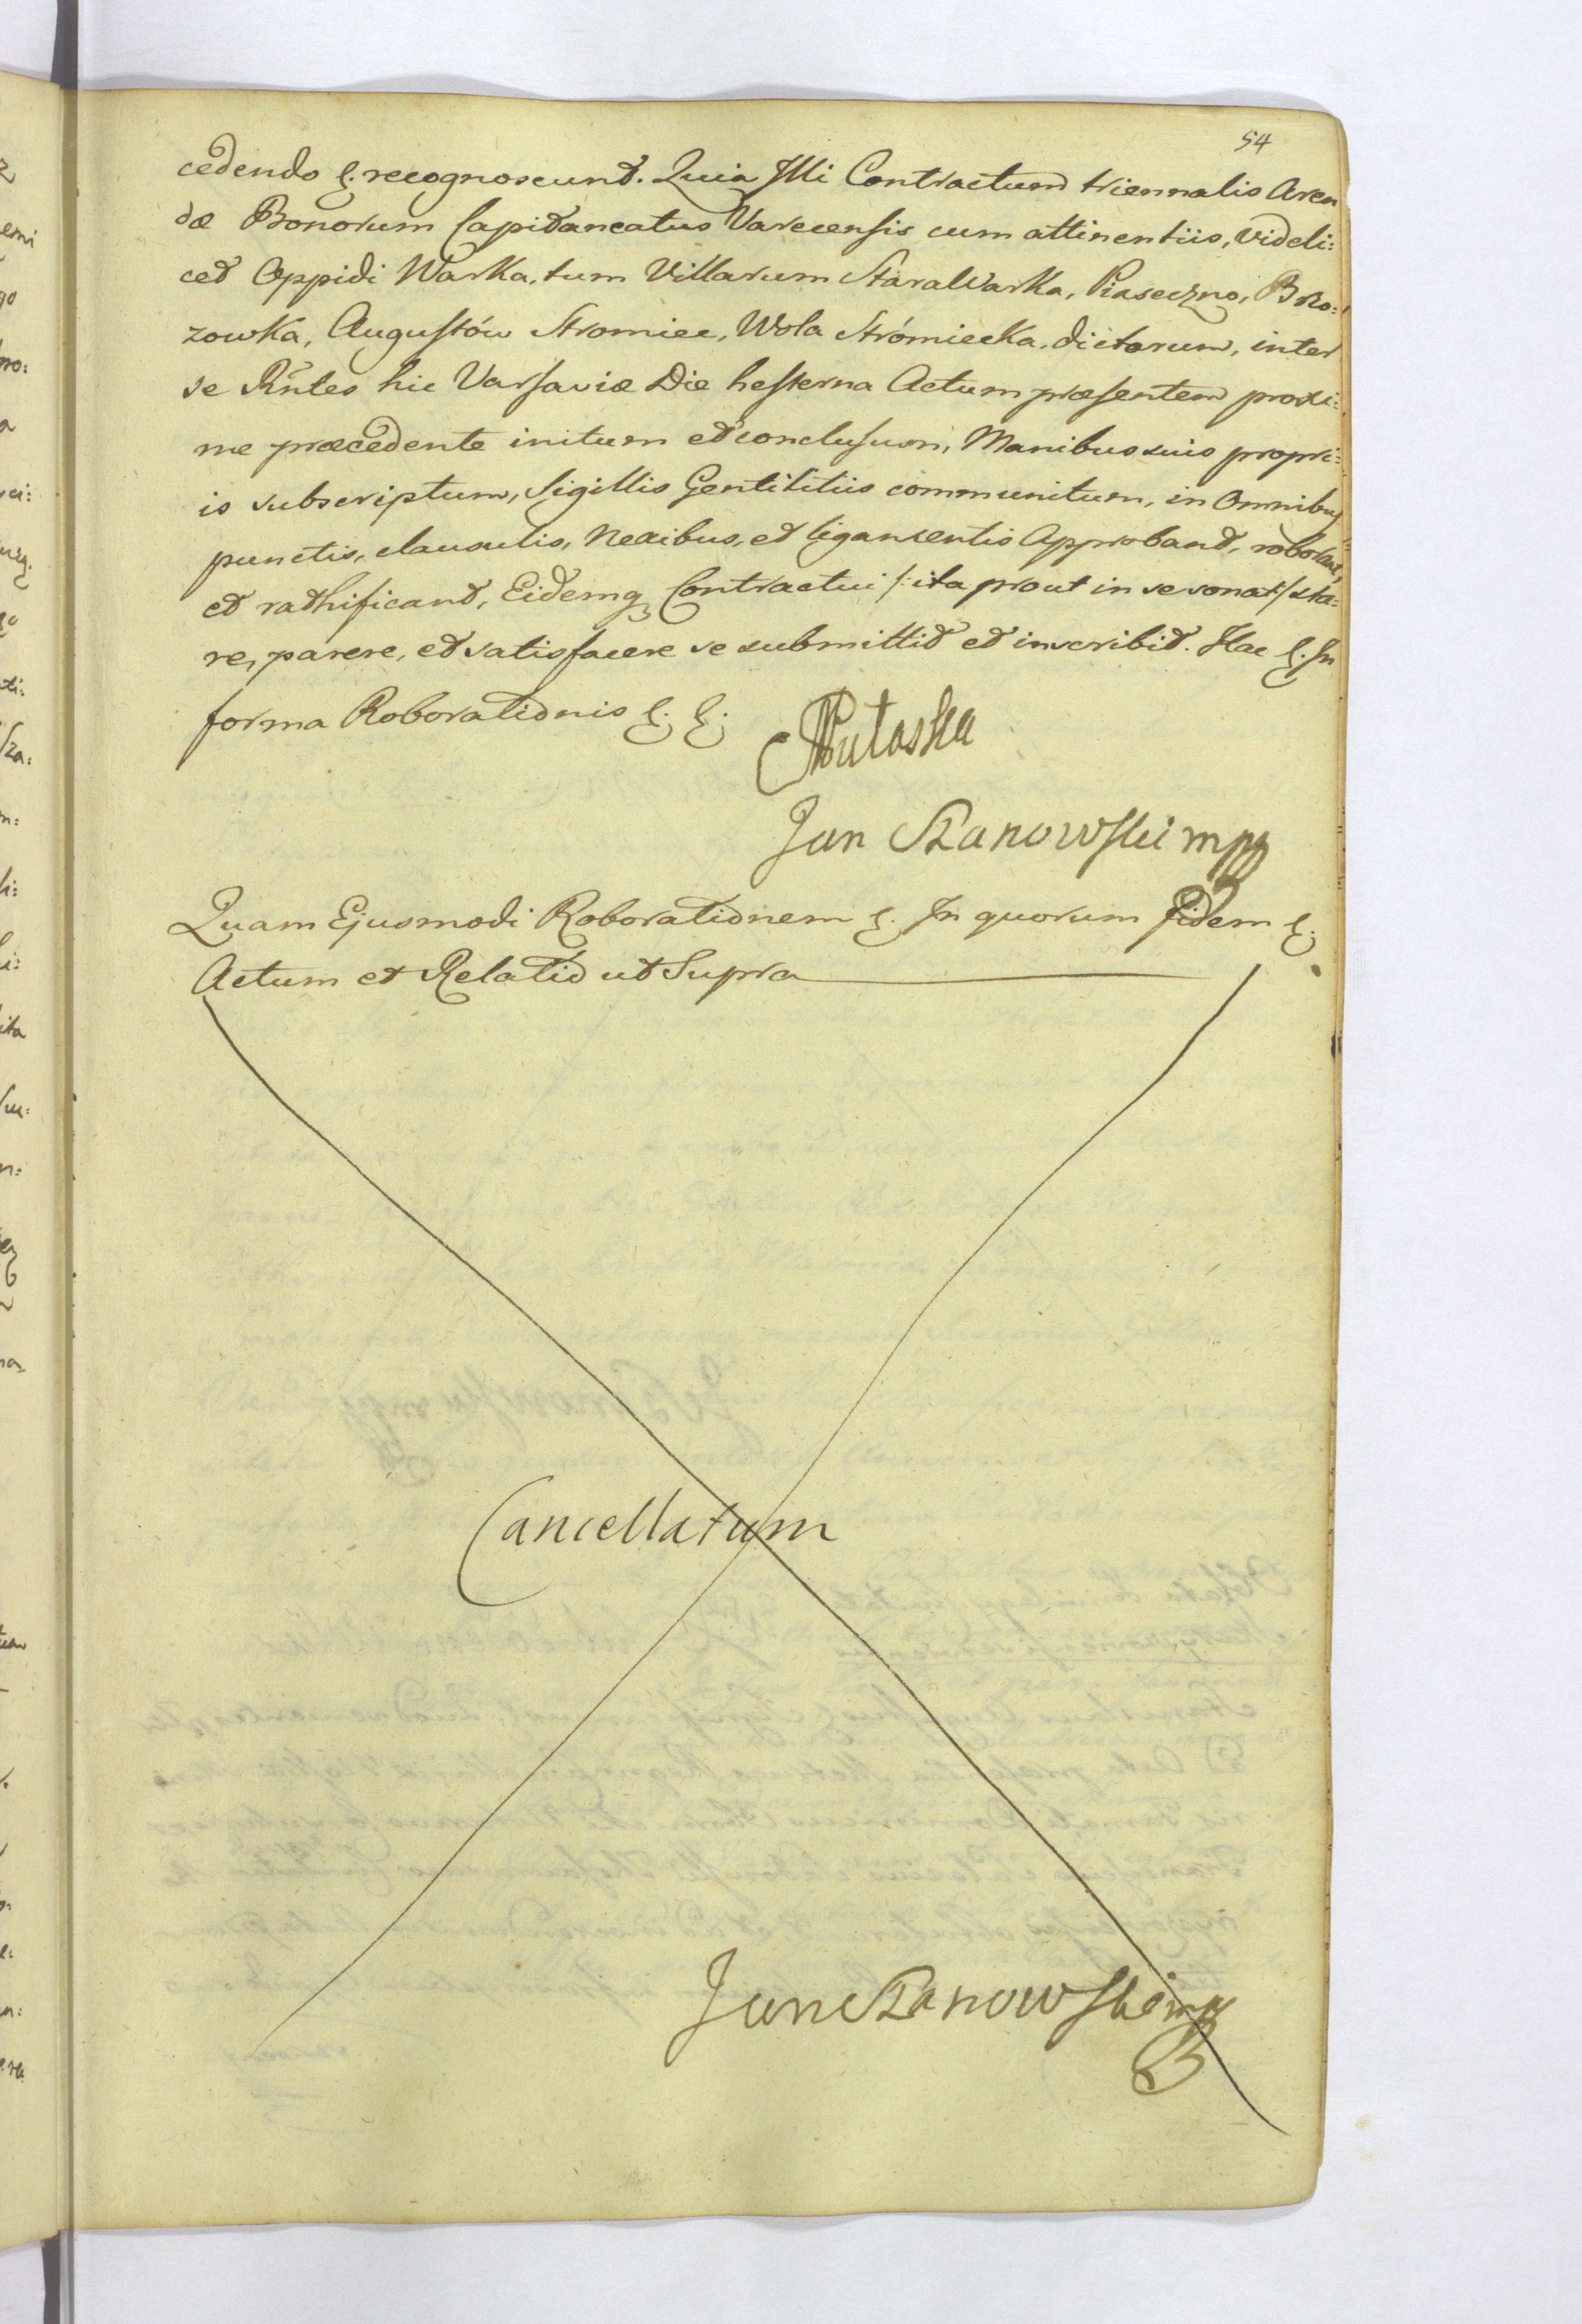 54
cedendo &. recognoscunt. Quia Illi Contractum triennalis Aren
dæ Bonorum Capitaneatus Varecensis cum attinentiis, videli:
cet Oppidi Warka, tum Villarum Stara Warka, Piaseczno, Brzo:
zowka, Augustów Stromiec, Wola Strómiecka, dictarum, inter
se Rñtes hic Varsaviæ Die hesterna Actum præsentem proxi:
me præcedente initum et conclusum, Manibus suis propri:
is subscriptum, Sigillis Gentilitiis communitum, in Omnibus
punctis, clausulis, Nexibus, et ligamentis Approbant, roborant,
et rathificant, Eidemq3 Contractui /: ita prout in se sonat :/ sta:
re, parere, et satisfacere se submittit et inscribit. Hac &. In
forma Roborationis &. &.
Jan Szanowski mpp
Quam Ejusmodi Roborationem &. In quorum fidem &.
Actum et Relatio ut Supra
Cancellatum
Jan Szanowski mpp